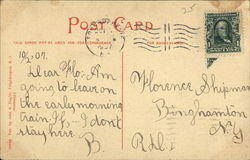 POST CARD
THIS SPACE MAY BE USED FOR CORRESPONDENCE
FOR ADDRESS ONLY
25
10/2.07.
Dear Flo: Am
going to leave on
the early morning
train If I dont
stay here
B.
Florence Shipman
Binghamton
N.Y.
R.d.1